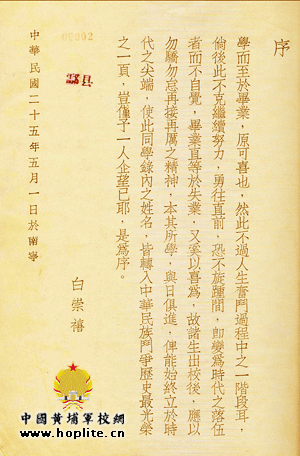 序
學而至於畢業，原可喜也，然此不過人生奮鬥過程中之一階段耳，
倘後此不克繼續努力，勇往直前，恐不旋踵間，卽變爲時代之落伍
者而不自覺，畢業直等於失業，又奚以喜爲，故諸生出校後，應以
勿驕勿怠再接再厲之精神，本其所學，與日俱進，俾能始終立於時
代之尖端，使此同學錄內之姓名，皆轉入中華民族鬥爭歷史最光榮
之一頁，豈僅予一人企望已耶，是爲序。
白崇禧
中華民國二十五年五月一日於南寧
中國黃埔軍校網
www.hoplite.cn